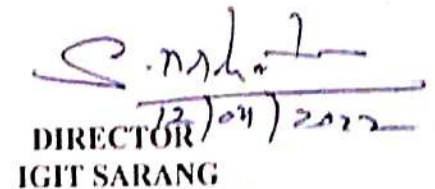 12/04/2022
DIRECTOR
IGIT SARANG